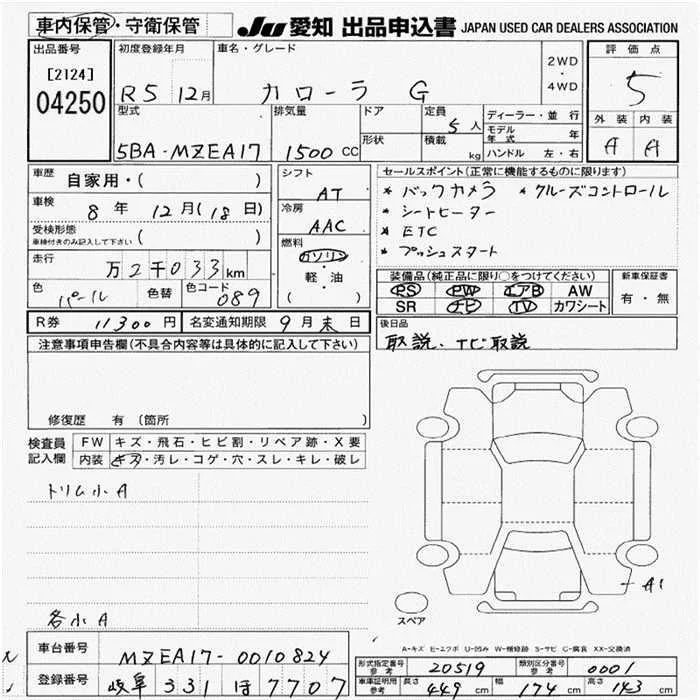 車内保管・守衛保管
JU 愛知 出品申込書 JAPAN USED CAR DEALERS ASSOCIATION
出品番号
[2124]
04250
初度登録年月
R5 12月
車名・グレード
カローラ G
2WD
・
4WD
評価点
5
外装 内装
A A
型式
5BA-MZEA17
排気量
1500 CC
ドア
形状
定員
5人
積載
kg
ディーラー・並行
モデル年式 年
ハンドル 左・右
車歴
自家用・( )
車検
8年 12月(18日)
受検形態
車検付きのみ記入して下さい ( )
走行
万2千033km
色
パール
色替
色コード
089
シフト
AT
冷房
AAC
燃料
ガソリン
・
軽・油
( )
セールスポイント(正常に機能するものに限ります)
* バックカメラ * クルーズコントロール
* シートヒーター
* ETC
* プッシュスタート
装備品(純正品に限り○をつけてください)
PS PW エアB AW
SR ナビ TV カワシート
新車保証書
有・無
R券 11300円
名変通知期限 9月末日
後日品
取説、ナビ取説
注意事項申告欄(不具合内容等は具体的に記入して下さい)
修復歴 有 (箇所 )
検査員記入欄
FW キズ・飛石・ヒビ割・リペア跡・X要
内装 キズ・汚レ・コゲ・穴・スレ・キレ・破レ
トリム小A
各小A
A1
スペア
A-キズ E-エクボ U-凹み W-補修跡 S-サビ C-腐食 XX-交換済
車台番号
MZEA17-0010824
登録番号
岐阜 331 ほ 7707
型式指定番号
参考
20519
類別区分番号
参考
0001
車庫証明用
参考
長さ 449 cm
幅 174 cm
高さ 143 cm